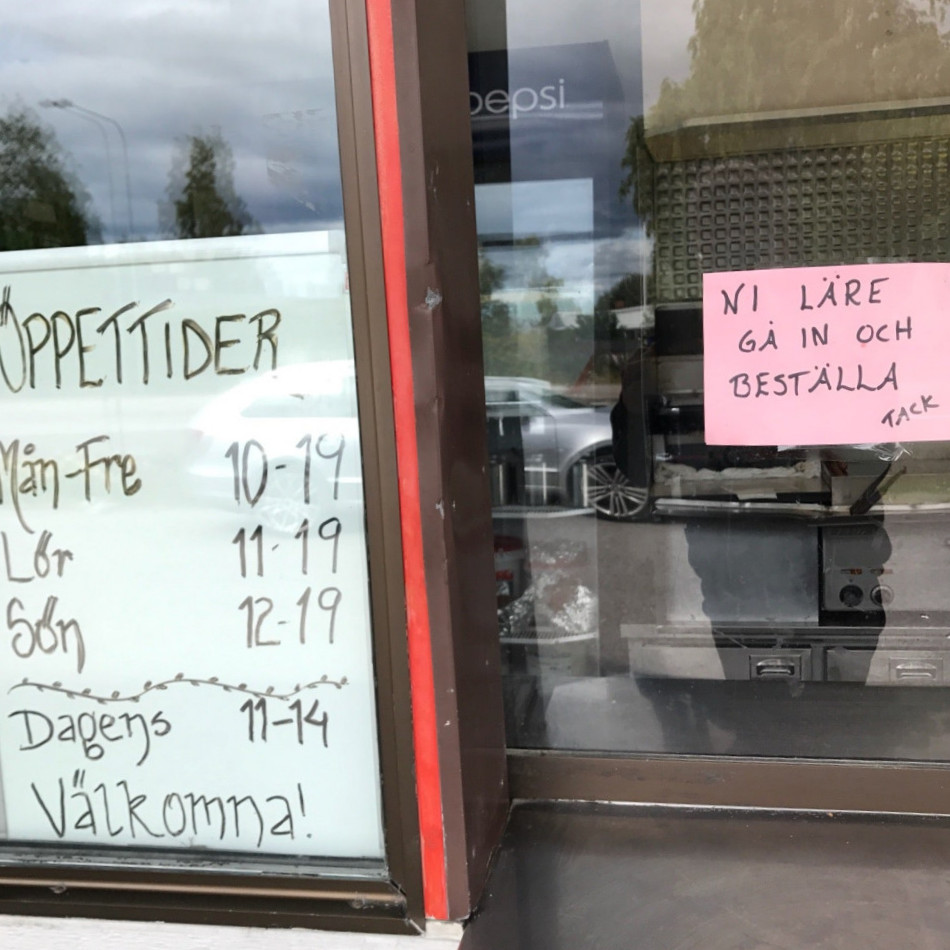 ÖPPETTIDER
Mån-Fre 10-19
Lör 11-19
Sön 12-19
Dagens 11-14
Välkomna!
pepsi
NI LÄRE
GÅ IN OCH
BESTÄLLA
TACK